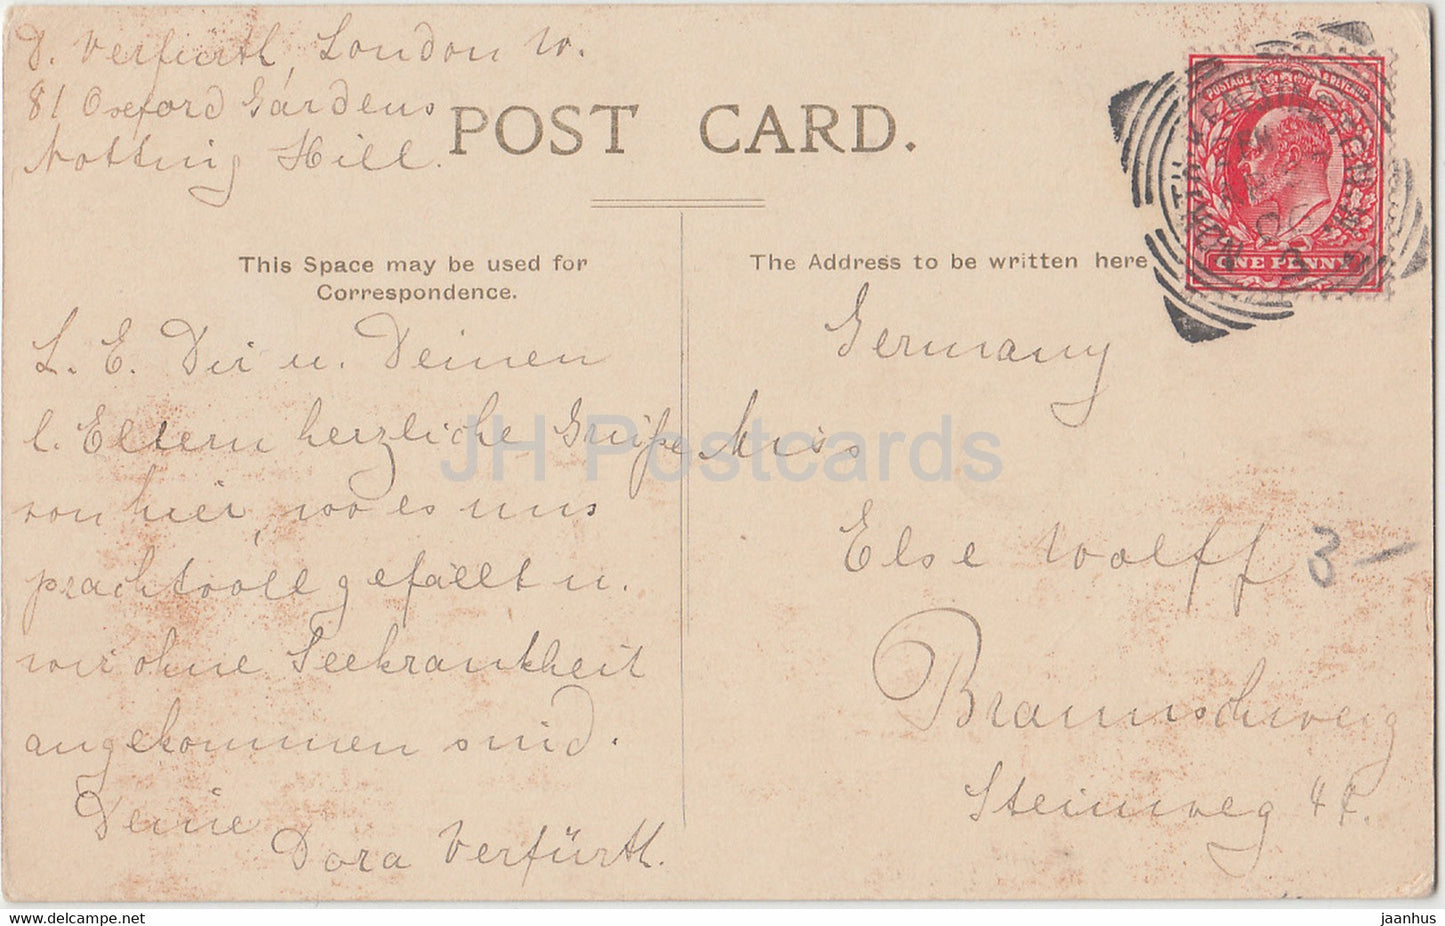 D. Verfürth, London W.
81 Oxford Gardens
Notting Hill.
POST CARD.
This Space may be used for
Correspondence.
The Address to be written here
L. E. Dir u. Deinen
l. Eltern herzliche Grüße
von hier, wo es uns
prachtvoll gefällt u.
wir ohne Seekrankheit
angekommen sind.
Deine
Dora Verfürth.
Germany
Miss
Else Wolff
Braunschweig
Steinweg
3 —
POSTAGE REVENUE
ONE PENNY
NORTH KENSINGTON
JH Postcards
jaanhus